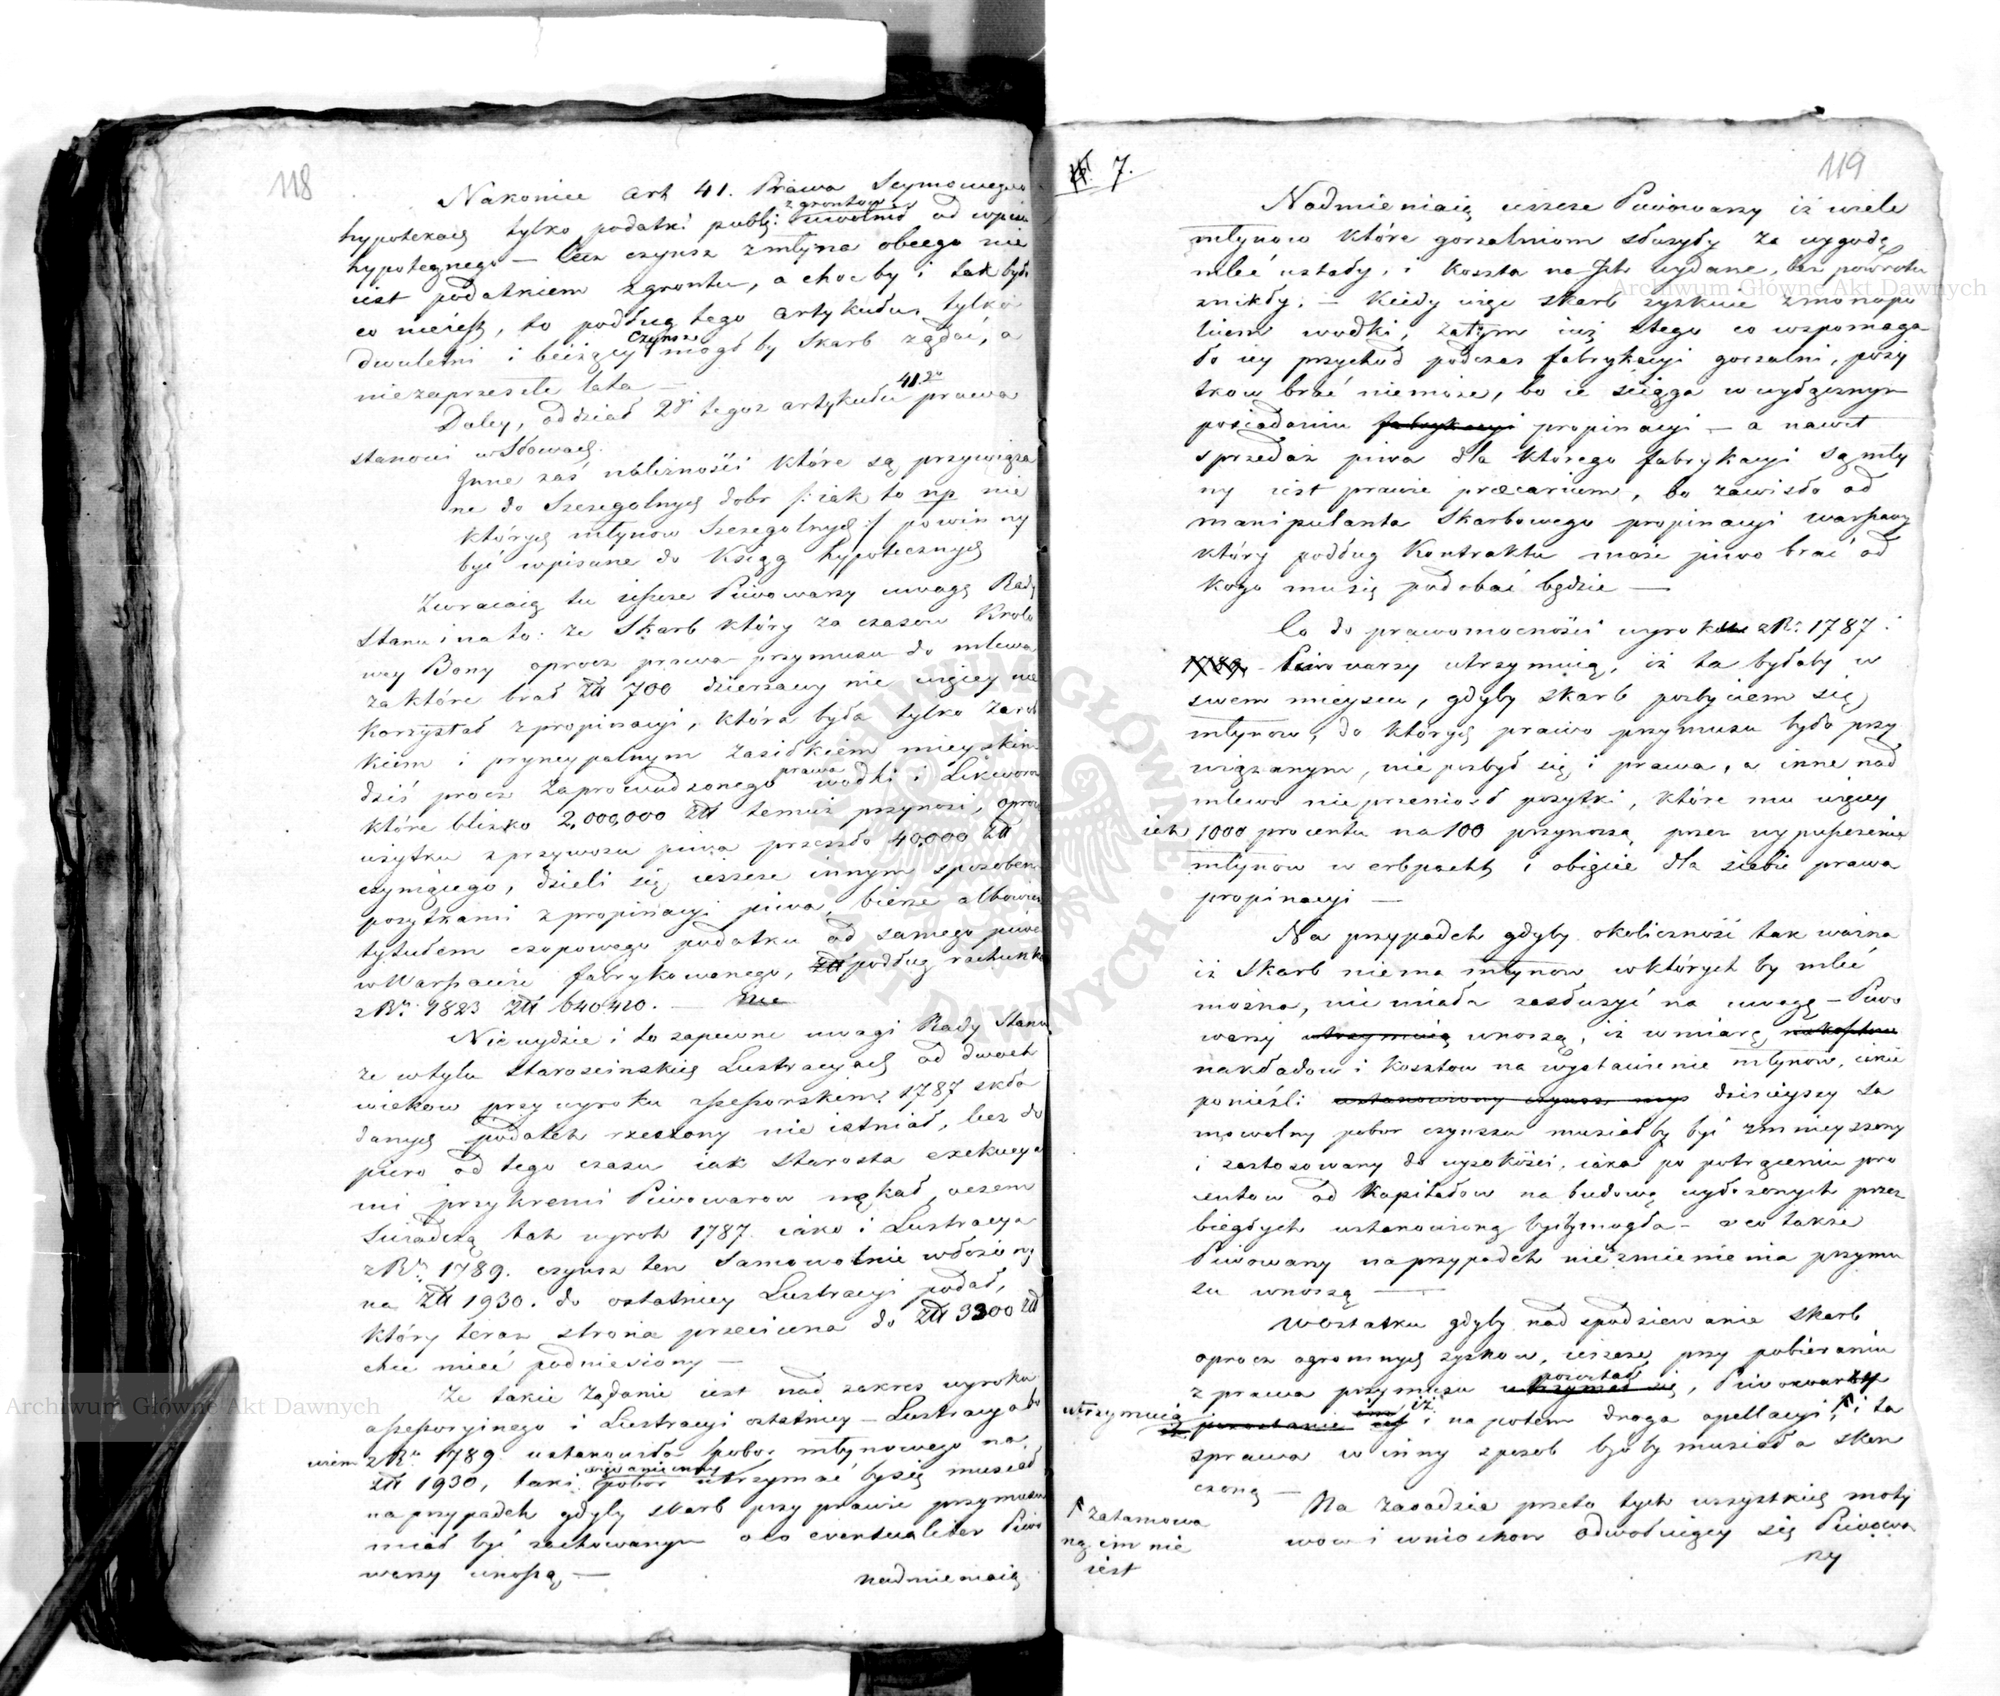 118
Nakoniec art 41. Prawa Seymowego
z gruntow
hypotekacą tylko podatki publ: uwolnić od wpisu
hypotegnego — lecz czynsz z młyna obcego nie
iest podatkiem z gruntu, a choćby i tak było
co nieiest, to podług tego artykułu, tylko
czynsz
dwuletni i bieżący mógł by Skarb żądać, a
niezaprzeszłe lata —
41. 2u
Daley, oddział 2gi tegoż artykułu prawa
stanowi w słowach.
Inne zaś należności które są przywiąza
ne do Szczególnych dobr /: iak to np nie
których młynow Szczególnych :/ powinny
być wpisane do Xsiąg hypotecznych
Zwracaią tu ieszcze Piwowarzy uwagę Rady
Stanu i na to: że Skarb który za czasow Krolo
wey Bony oprocz prawa przymusu do mlewa
za które brał Złł 700 dzierżawy nic więcey nie
korzystał z propinacyi, która była tylko zarob
kiem i pryncypalnym zasiłkiem mieyskim
prawa
dziś procz zaprowadzonego wodki i Likworow
które blisko 2,000,000 złł temuż przynosi, oprocz
użytku z przywozu piwa przeszło 40,000 złł
czyniącego, dzieli się ieszcze innym sposobem
pożytkami z propinacyi piwa, bierze albowiem
tytułem czopowego podatku od samego piwa
w Warszawie fabrykowanego, złł podług rachunku
z Rn: 1823 złł 640420. —
Nieuydzie i to zapewne uwagi Rady Stanu
że w tylu Starościńskich Lustracyach od dwoch
wiekow przy wyroku assessorskim 1787 skła
danych podatek rzeczony nie istniał, lecz do
piero od tego czasu iak Starosta exekucya
mi przykremi Piwowarow nękał, oczem
świadczą tak wyrok 1787 iako i Lustracya
z Rn: 1789. czynsz ten Samowolnie włożony
na złł 1930. do ostatniey Lustracyi podał,
który teraz strona przeciwna do złł 3300 złł
chce mieć podniesiony —
Że takie żądanie iest nad zakres wyroku
assessoryinego i Lustracyi ostatniey — Lustracya bo
wiem z Ru 1789 ustanowiła pobor młynowego na
złł 1930, taki pobor utrzymać by się musiał
na przypadek gdyby Skarb przy prawie przymusu
miał być zachowanym o co eventualiter Piwo
warzy wnoszą —
nadmieniaią
7.
119
Nadmieniaią ieszcze Piwowarzy iż wiele
młynow które gorzalniom służyły za wygodę
mleć ustały, i koszta na Jch wydane, bez powrotu
znikły. — Kiedy więc skarb zyskuie z monopo
liem wodki, zatym iuż z tego co wspomaga
do iey przychod podczas fabrykacyi gorzalni, poży
tkow brać niemoże, bo ie ściąga w wyłącznym
posiadaniu fabrykacyi propinacyi — a nawet
sprzedaż piwa dla którego fabrykacyi są mły
ny iest prawie precarium, bo zawisło od
manipulanta Skarbowego propinacyi warszawy
który podług Kontraktu może piwo brać od
kogo mu się podobać będzie —
Co do prawomocności wyroku z R: 1787.
1789. Piwowarzy utrzymuią, iż ta byłaby w
swem mieyscu, gdyby skarb pozbyciem się
młynow, do których prawo przymusu było przy
wiązanym, nie pozbył się i prawa, a inne nad
mlewo nie przeniosł pożytki, które mu więcey
iak 1000 procentu na 100 przynoszą przez wypuszczenie
młynow w erbpacht i obięcie dla siebie prawa
propinacyi —
Na przypadek gdyby okoliczność tak ważna
iż Skarb niema młynow w których by mleć
można, nie miała zasłużyć na uwagę — Piwo
warzy utrzymuią wnoszą, iż w miarę
nakładow i kosztow na wystawienie młynow, iakie
ponieśli ustanowiony czynsz dzisieyszy sa
mowolny pobor czynszu musiałby być zmnieyszony
i zastosowany do wysokości, iaka po potrąceniu pro
centow od kapitałow na budowę wyłożonych przez
biegłych ustanowioną byćby mogła — o co także
Piwowarzy na przypadek nie zmienienia przymu
su wnoszą —
W ostatku gdyby nad spodziewanie Skarb
oprocz ogromnych zyskow, ieszcze przy pobieraniu
pozostał
z prawa przymusu utrzymał się, Piwowarzy
iż
utrzymuią pozostanie im i na potem droga apellacyi, ↑ i ta
sprawa w inny sposob byłoby musiała skoń
czoną —
↑ zatamowa
ną im nie
iest
Na zasadzie przeto tych wszystkich moty
wow i wnioskow odwołuiący się Piwowa
rzy